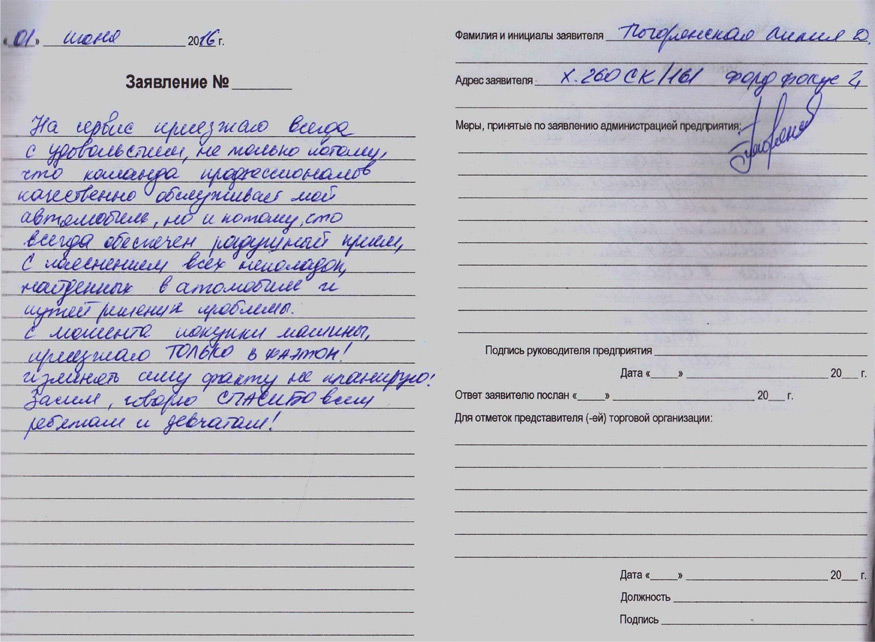 «01» июня 2016 г.
Заявление №
На сервис приезжаю всегда
с удовольствием, не только потому,
что команда профессионалов
качественно обслуживает мой
автомобиль, но и потому, что
всегда обеспечен радушный прием,
с пояснением всех неполадок,
найденных в автомобиле и
путей решения проблемы.
С момента покупки машины,
приезжаю ТОЛЬКО в ФАЛТОН!
изменять сему факту не планирую!
Засим, говорю СПАСИБО всем
ребятам и девчатам!
Фамилия и инициалы заявителя Погорянская Лилия Ю.
Адрес заявителя Х.260СК/161 Форд Фокус 2,
Меры, принятые по заявлению администрацией предприятия:
Подпись руководителя предприятия
Дата «     » 20    г.
Ответ заявителю послан «     » 20    г.
Для отметок представителя (-ей) торговой организации:
Дата «     » 20    г.
Должность
Подпись